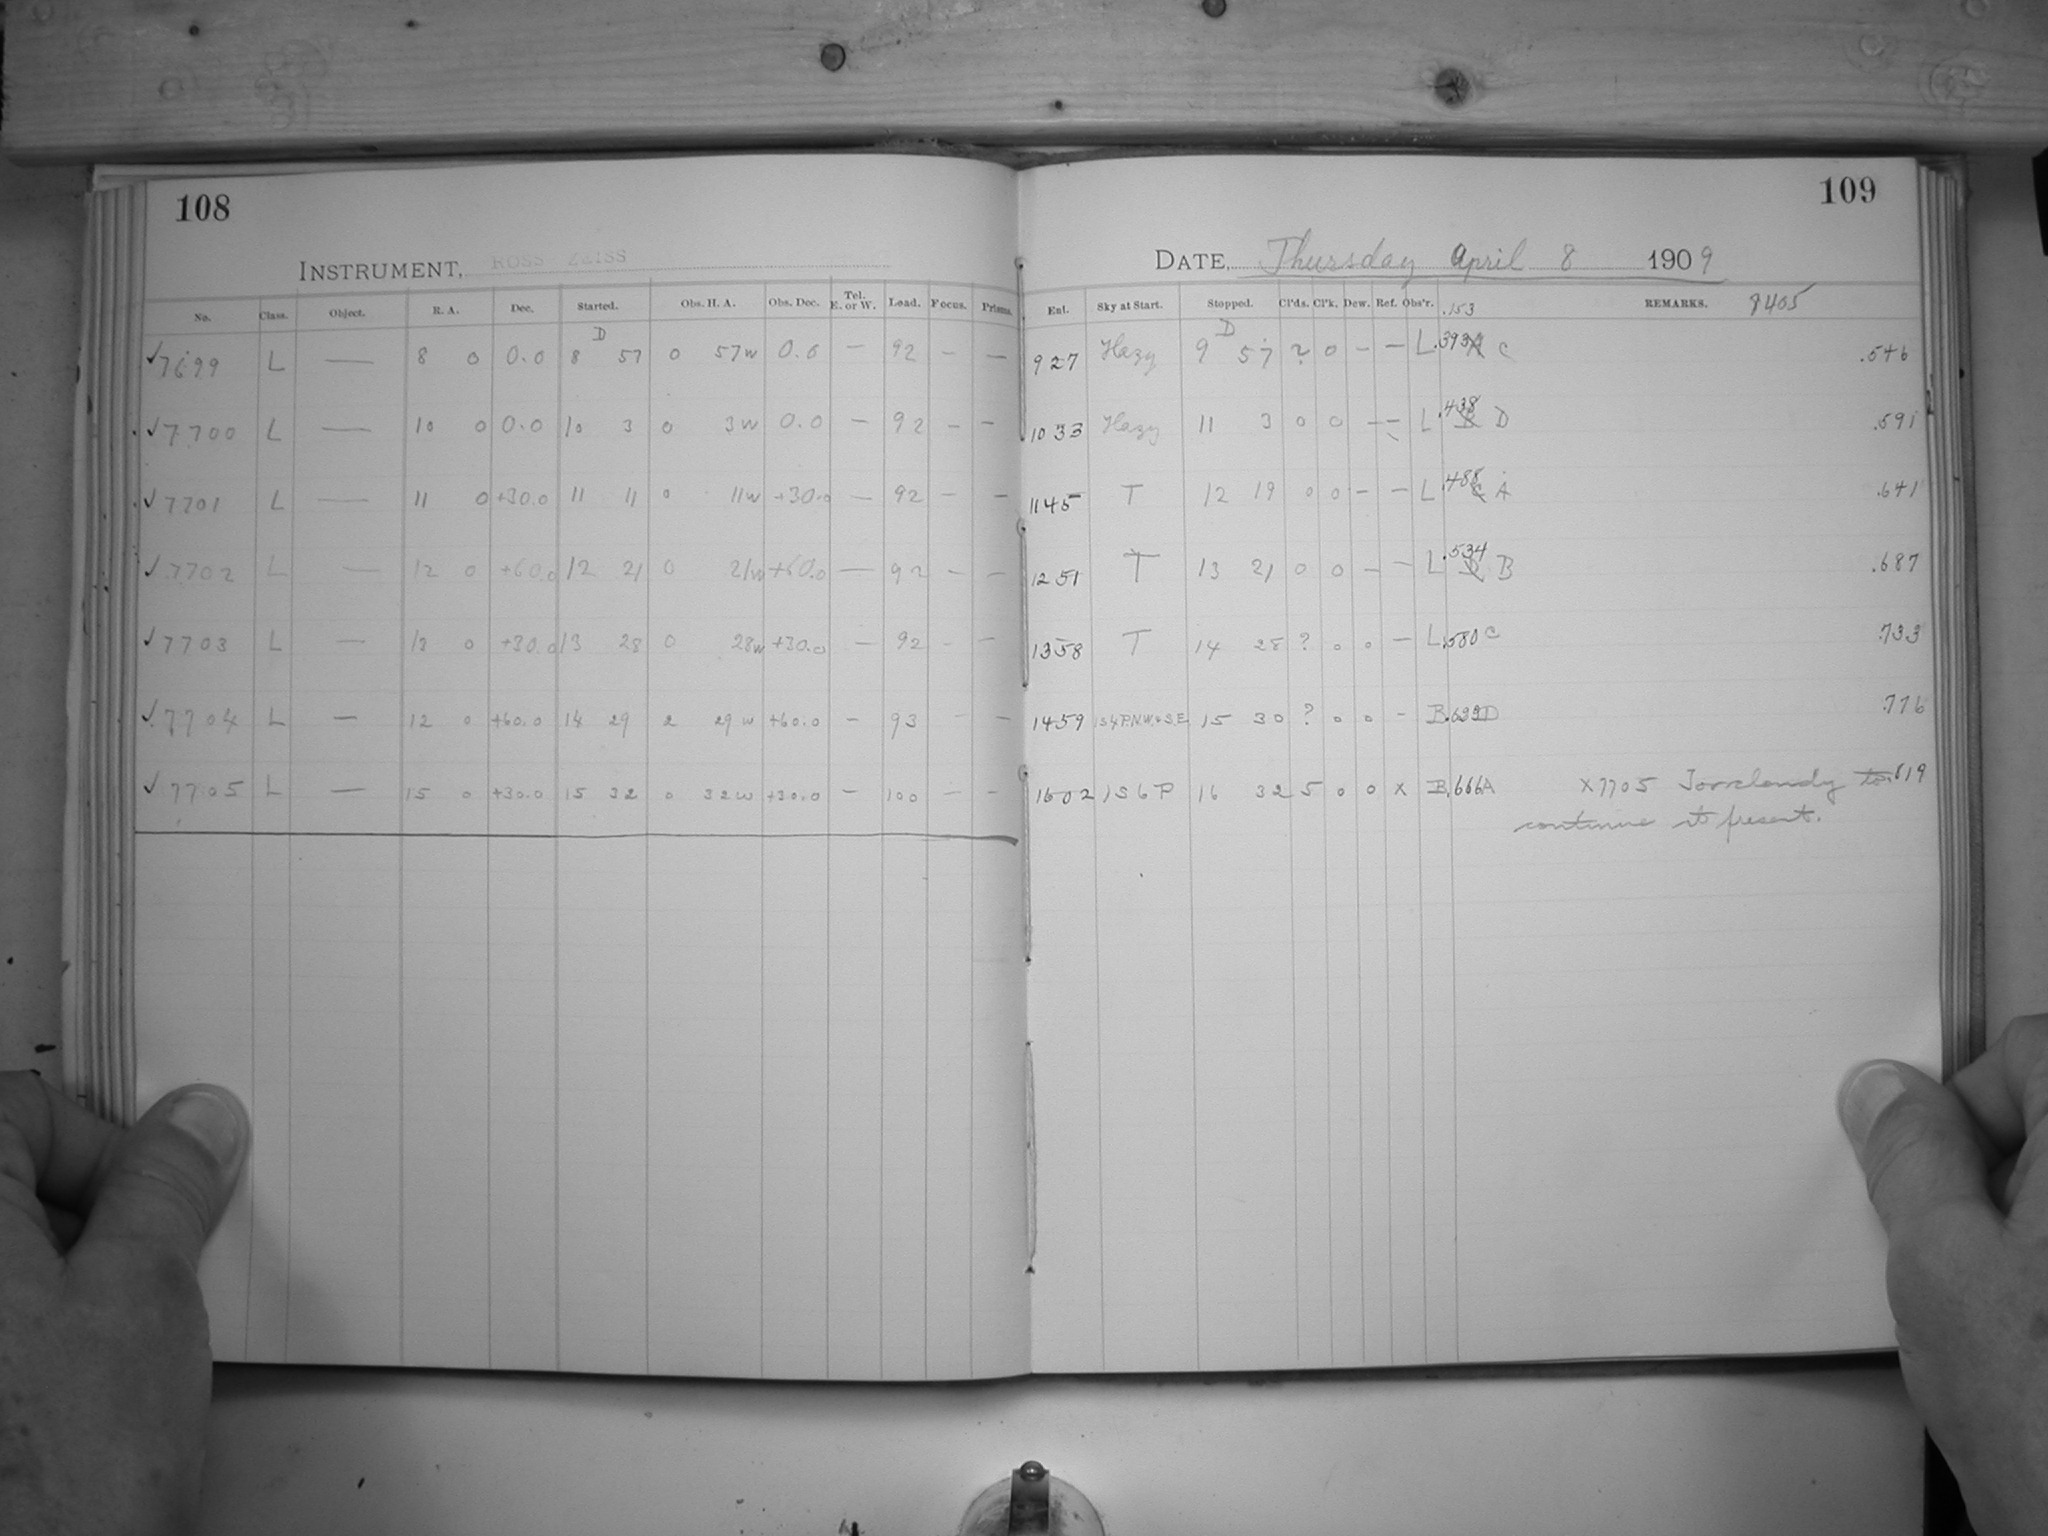 108
INSTRUMENT, ROSS ZEISS
No. Class. Object. R. A. Dec. Started. Obs. H. A. Obs. Dec. Tel. E. or W. Lead. Focus. Prisms.
D
✓7699 L — 8 0 0.0 8 57 0 57w 0.0 — 92 — —
✓7700 L — 10 0 0.0 10 3 0 3w 0.0 — 92 — —
✓7701 L — 11 0 +30.0 11 11 0 11w +30.0 — 92 — —
✓7702 L — 12 0 +60.0 12 21 0 21w +60.0 — 92 — —
✓7703 L — 13 0 +30.0 13 28 0 28w +30.0 — 92 — —
✓7704 L — 12 0 +60.0 14 29 2 29w +60.0 — 93 — —
✓7705 L — 15 0 +30.0 15 32 0 32w +30.0 — 100 — —
109
DATE, Thursday April 8 1909
Ent. Sky at Start. Stopped. Cl'ds. Cl'k. Dew. Ref. Obs'r. .153 REMARKS. 8405
D
927 Hazy 9 57 ? 0 — — L .393 C .546
1033 Hazy 11 3 0 0 — — L .438 D .591
1145 T 12 19 0 0 — — L .488 A .641
1251 T 13 21 0 0 — — L .534 B .687
1358 T 14 28 ? 0 0 — L .580 C .733
1459 1S4P.N.W.+S.E. 15 30 ? 0 0 — B D .776
1602 1S6P 16 32 5 0 0 x B .666 A x7705 Too cloudy to .819
continue at present.